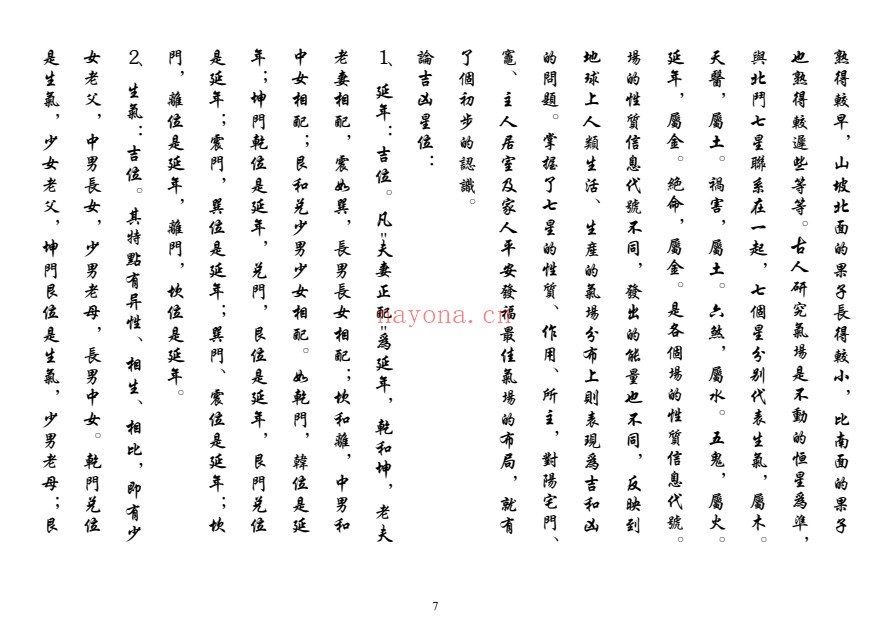 熟得較早，山坡北面的果子長得較小，比南面的果子
也熟得較遲些等等。古人研究氣場是不動的恒星爲準，
與北鬥七星聯系在一起，七個星分别代表生氣，屬木。
天醫，屬土。禍害，屬土。六煞，屬水。五鬼，屬火。
延年，屬金。絶命，屬金。是各個場的性質信息代號。
場的性質信息代號不同，發出的能量也不同，反映到
地球上人類生活、生産的氣場分布上則表現爲吉和凶
的問題。掌握了七星的性質、作用、所主，對陽宅門、
竈、主人居室及家人平安發福最佳氣場的布局，就有
了個初步的認識。
論吉凶星位：
1、延年：吉位。凡"夫妻正配"爲延年，乾和坤，老夫
老妻相配，震如巽，長男長女相配；坎和離，中男和
中女相配；艮和兑少男少女相配。如乾門，韓位是延
年；坤門乾位是延年，兑門，艮位是延年，艮門兑位
是延年；震門，巽位是延年；巽門、震位是延年；坎
門，離位是延年，離門，坎位是延年。
2、生氣：吉位。其特點有异性、相生、相比，即有少
女老父，中男長女，少男老母，長男中女。乾門兑位
是生氣，少女老父，坤門艮位是生氣，少男老母；艮
nayona.cn
7